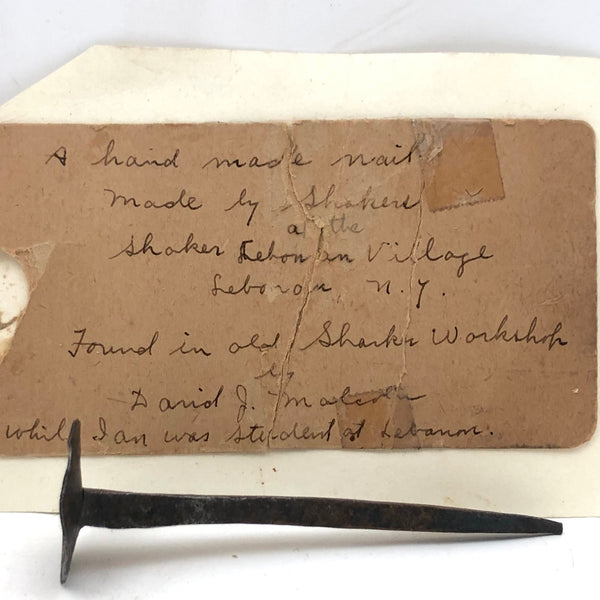 A hand made nail
Made by Shakers
at the
Shaker Lebanon Village
Lebanon, N.Y.
Found in old Sharker Workshop
by
David J. Malcolm
while Ian was student at Lebanon.